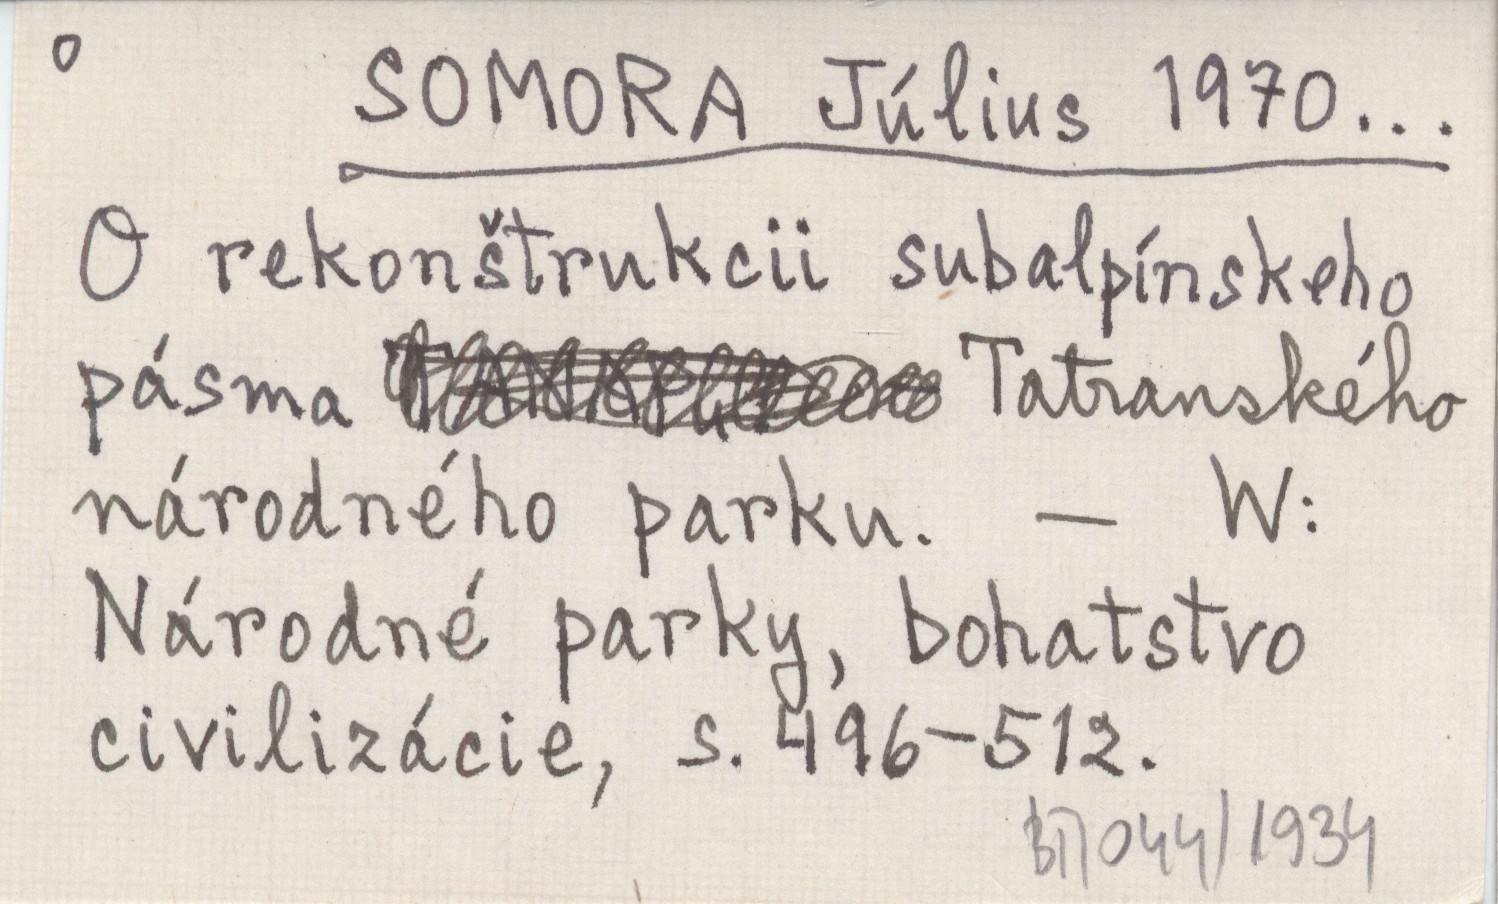 o
SOMORA Július 1970...
O rekonštrukcii subalpínskeho
pásma Tatranského
národného parku. — W:
Národné parky, bohatstvo
civilizácie, s. 496-512.
044/1934